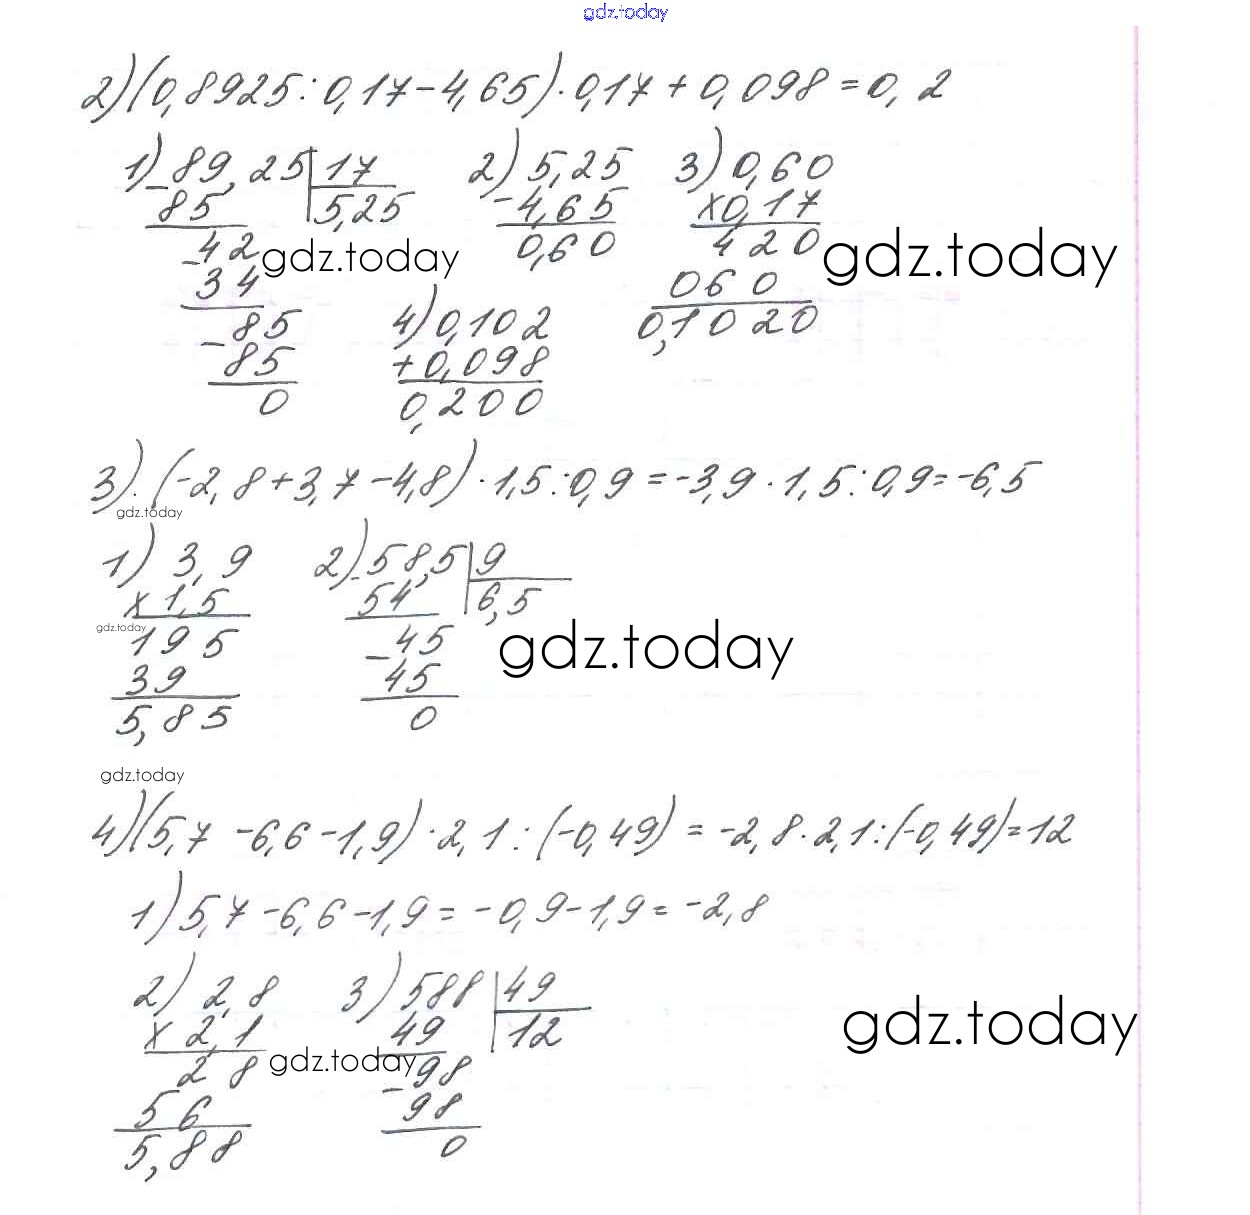 gdz.today
2) (0,8925 : 0,17 - 4,65) · 0,17 + 0,098 = 0,2
1) 89,25 | 17 2) 5,25 3) 0,60
- 85 5,25 - 4,65 × 0,17
- 42 gdz.today 0,60 420 gdz.today
34 060
- 85 4) 0,102 0,1020
- 85 + 0,098
0 0,200
3). (-2,8 + 3,7 - 4,8) · 1,5 : 0,9 = -3,9 · 1,5 : 0,9 = -6,5
gdz.today
1) 3,9 2) - 58,5 | 9
× 1,5 54 6,5
gdz.today 195 - 45 gdz.today
39 45
5,85 0
gdz.today
4) (5,7 - 6,6 - 1,9) · 2,1 : (-0,49) = -2,8 · 2,1 : (-0,49) = 12
1) 5,7 - 6,6 - 1,9 = -0,9 - 1,9 = -2,8
2) 2,8 3) 588 | 49
× 2,1 49 12 gdz.today
28 gdz.today - 98
56 98
5,88 0